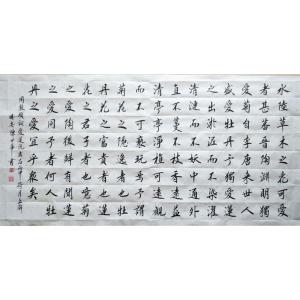 水陸草木之花可愛
者甚蕃晉陶淵明獨
愛菊自李唐來世人
盛愛牡丹予獨愛蓮
之出淤泥而不染濯
清漣而不妖中通外
直不蔓不枝香遠益
清亭亭淨植可遠觀
而不可褻玩焉予謂
菊花之隱逸者也牡
丹花之富貴者也蓮
花之君子者也噫菊
之愛陶後鮮有聞蓮
之愛同予者何人牡
丹之愛宜乎衆矣
周敦頤 愛蓮説